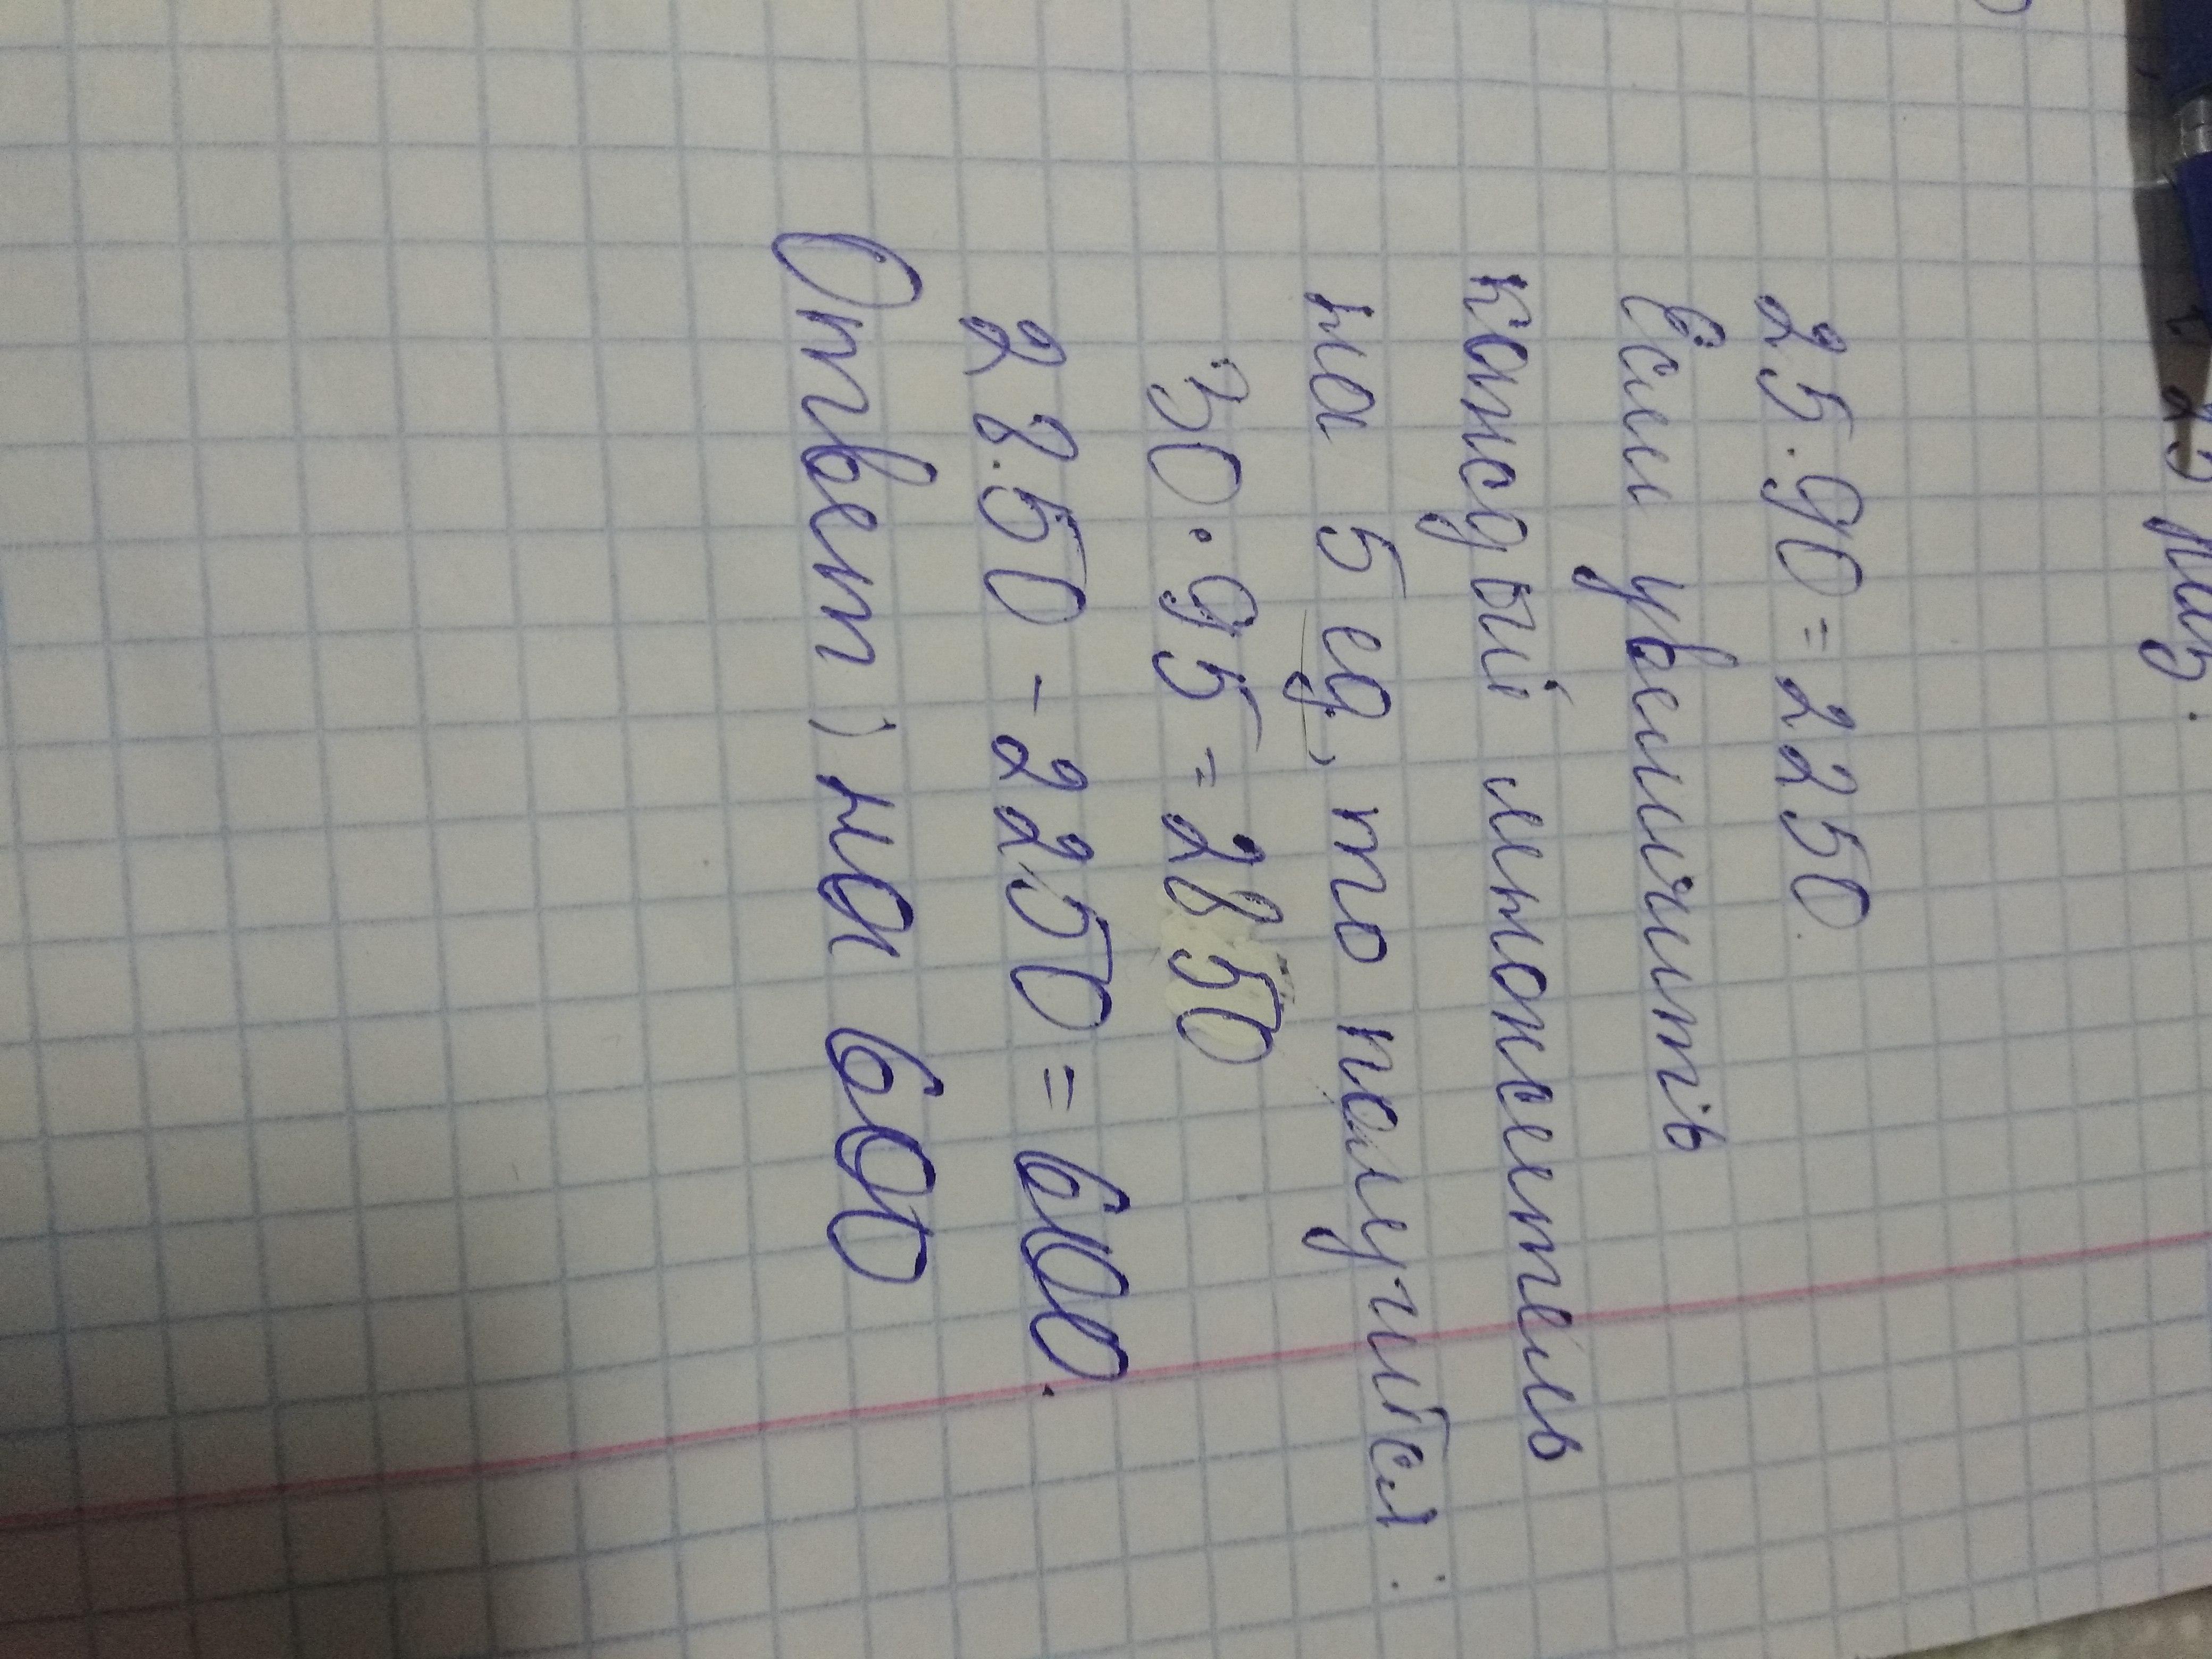 25·90=2250.
Если увеличить
каждый множитель
на 5 ед, то получится:
30·95=2850
2850-2250=600.
Ответ) на 600